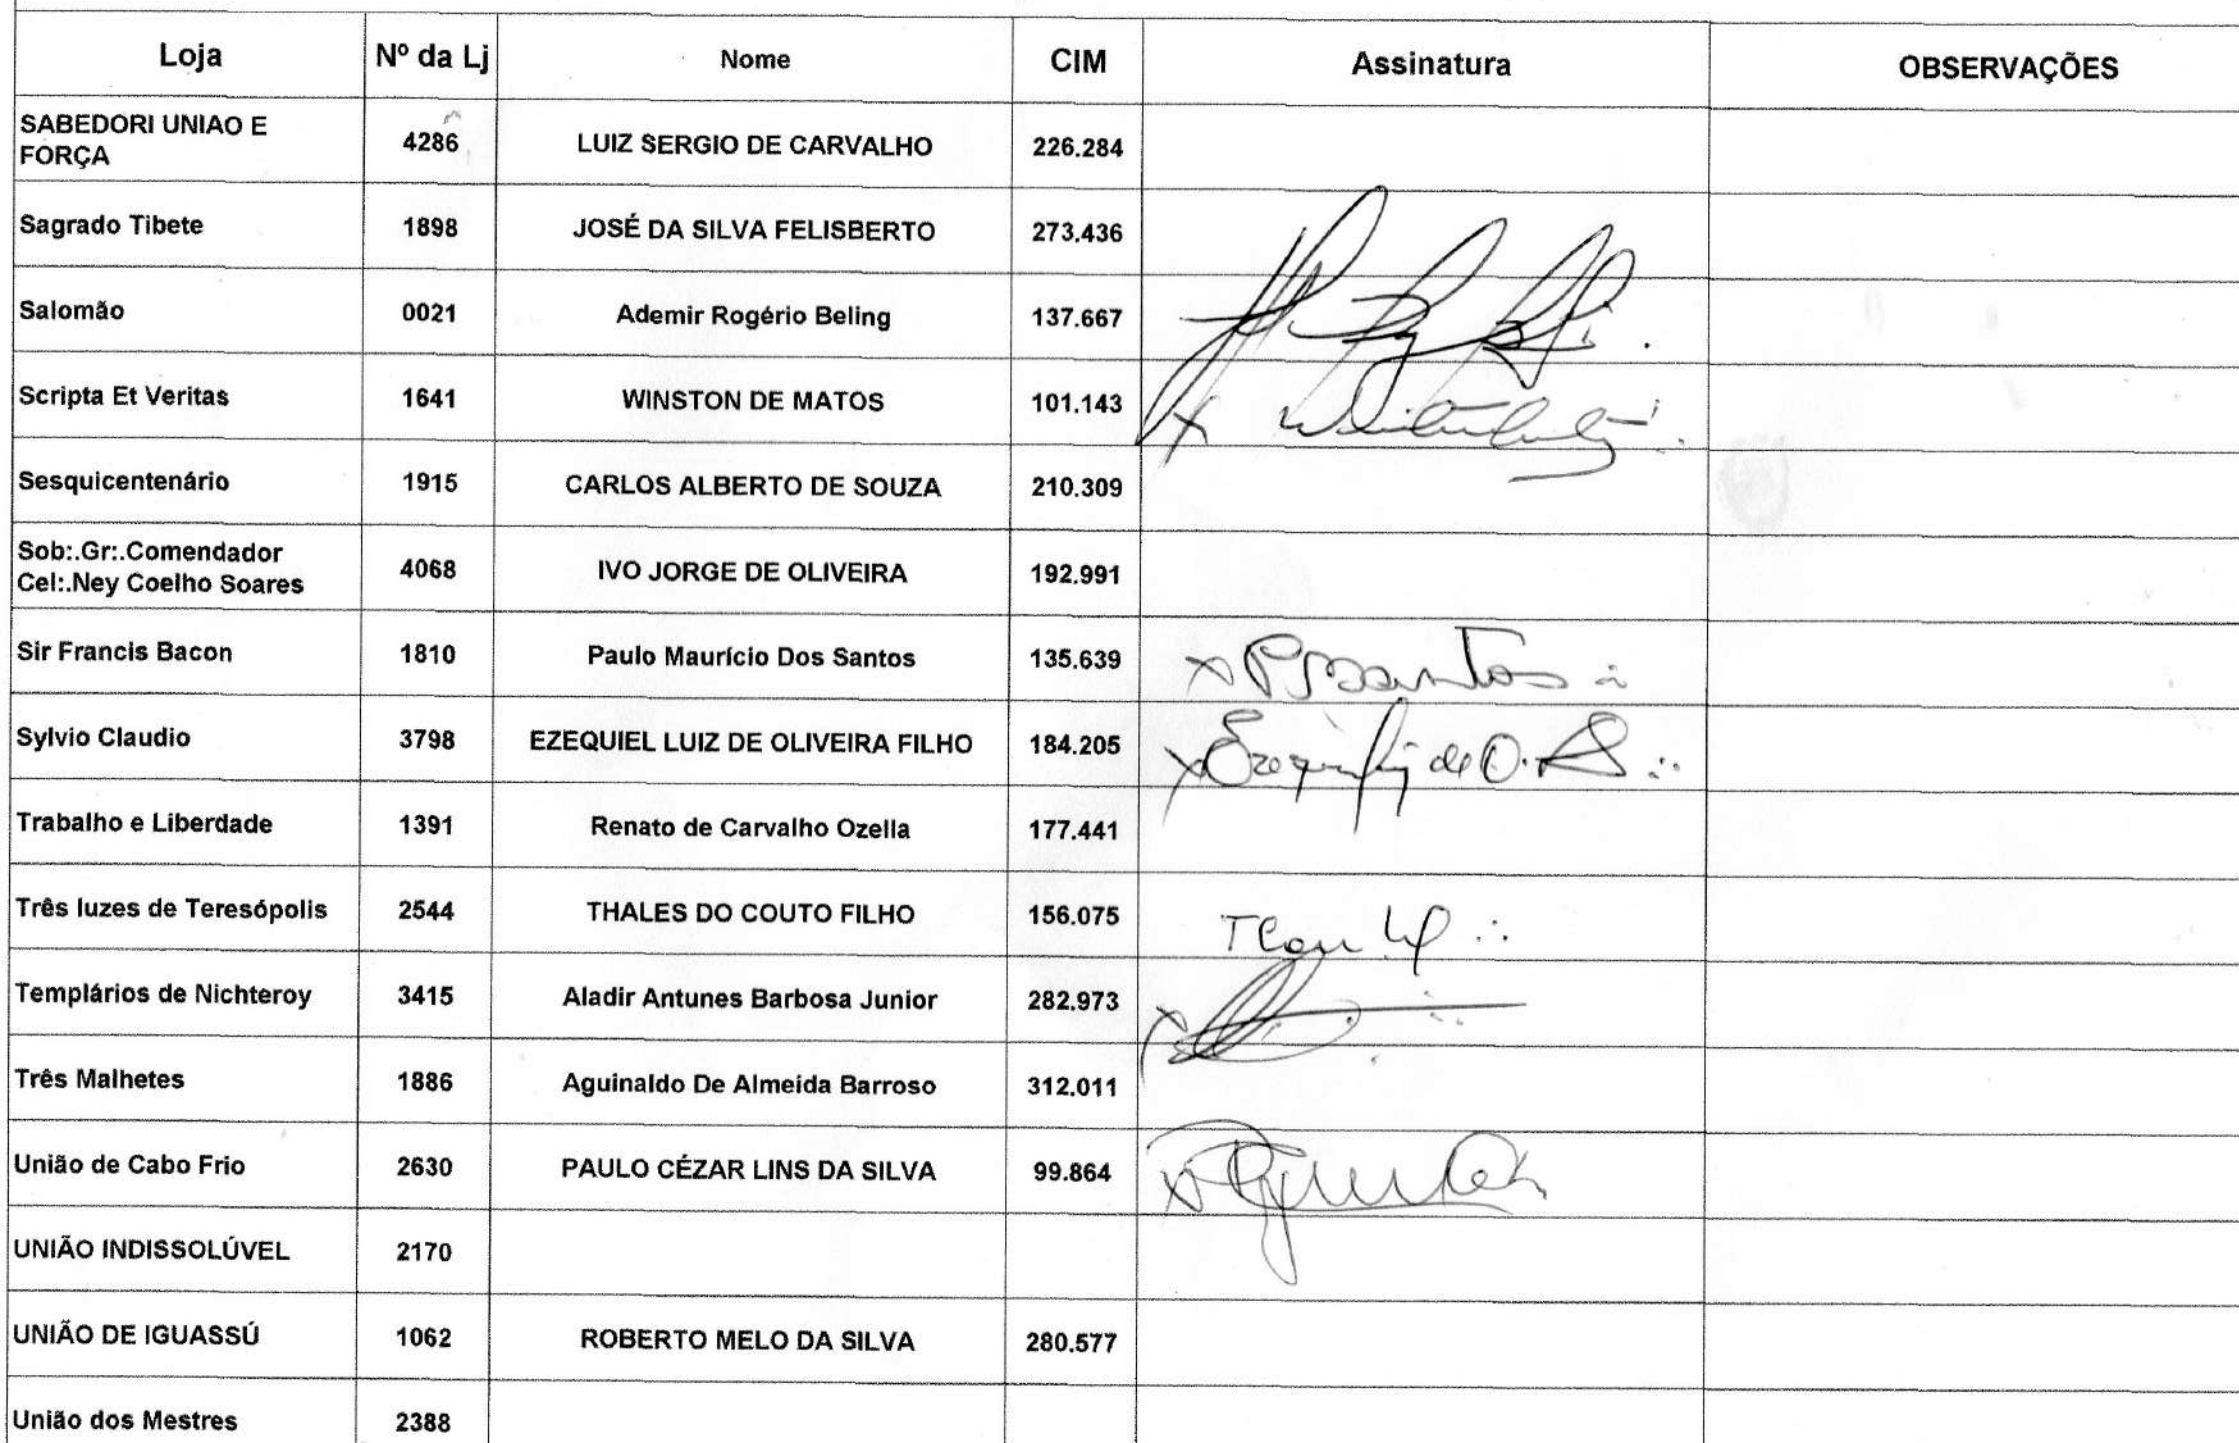 Loja Nº da Lj Nome CIM Assinatura OBSERVAÇÕES
SABEDORI UNIAO E
FORÇA 4286 LUIZ SERGIO DE CARVALHO 226.284
Sagrado Tibete 1898 JOSÉ DA SILVA FELISBERTO 273.436
Salomão 0021 Ademir Rogério Beling 137.667
Scripta Et Veritas 1641 WINSTON DE MATOS 101.143 x
Sesquicentenário 1915 CARLOS ALBERTO DE SOUZA 210.309
Sob:.Gr:.Comendador
Cel:.Ney Coelho Soares 4068 IVO JORGE DE OLIVEIRA 192.991
Sir Francis Bacon 1810 Paulo Maurício Dos Santos 135.639 x
Sylvio Claudio 3798 EZEQUIEL LUIZ DE OLIVEIRA FILHO 184.205 x
Trabalho e Liberdade 1391 Renato de Carvalho Ozella 177.441
Três luzes de Teresópolis 2544 THALES DO COUTO FILHO 156.075
Templários de Nichteroy 3415 Aladir Antunes Barbosa Junior 282.973 x
Três Malhetes 1886 Aguinaldo De Almeida Barroso 312.011
União de Cabo Frio 2630 PAULO CÉZAR LINS DA SILVA 99.864 x
UNIÃO INDISSOLÚVEL 2170
UNIÃO DE IGUASSÚ 1062 ROBERTO MELO DA SILVA 280.577
União dos Mestres 2388